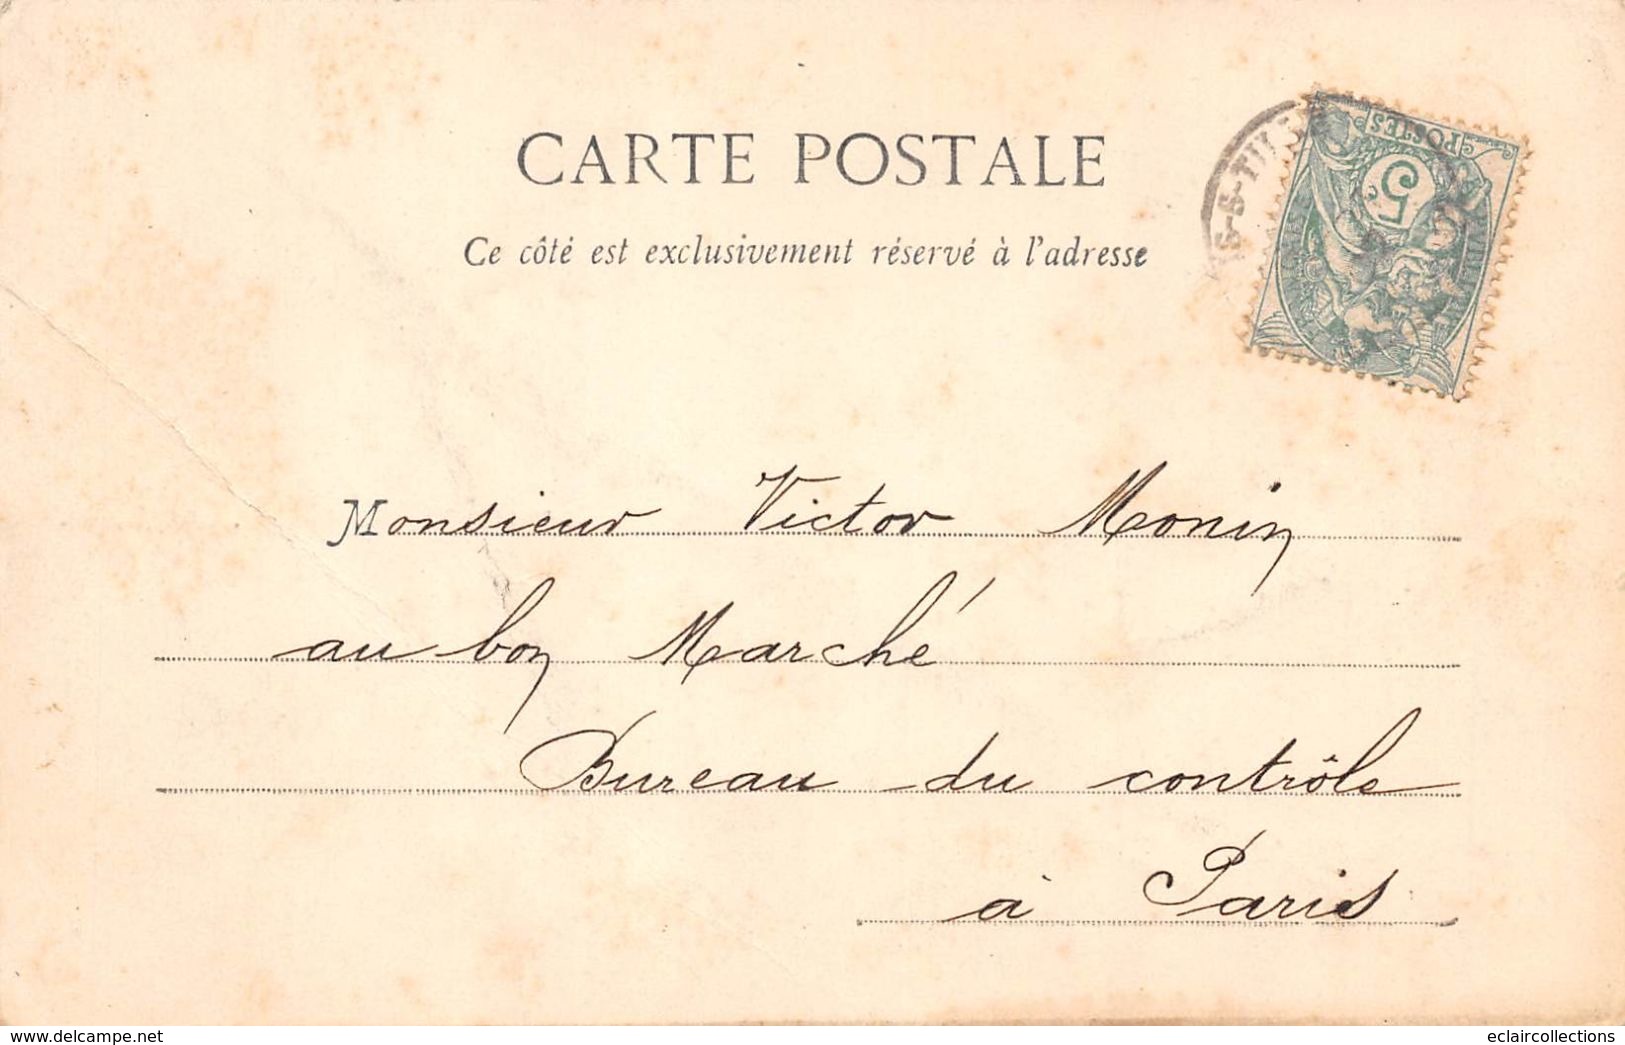 CARTE POSTALE
Ce côté est exclusivement réservé à l'adresse
POSTES
5
Monsieur Victor Monin
au bon Marché
Bureau du contrôle
à Paris
www.delcampe.net
eclaircollections